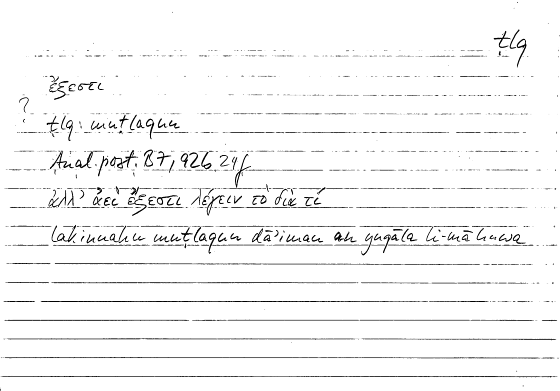 ṭlq
ἔξεστι
?
ṭlq: muṭlaqun
Anal. post. B7, 92b 24f
ἀλλ’ ἀεὶ ἔξεστι λέγειν τὸ διὰ τί
lakinnahu muṭlaqun dāʾiman an yuqāla li-mā huwa